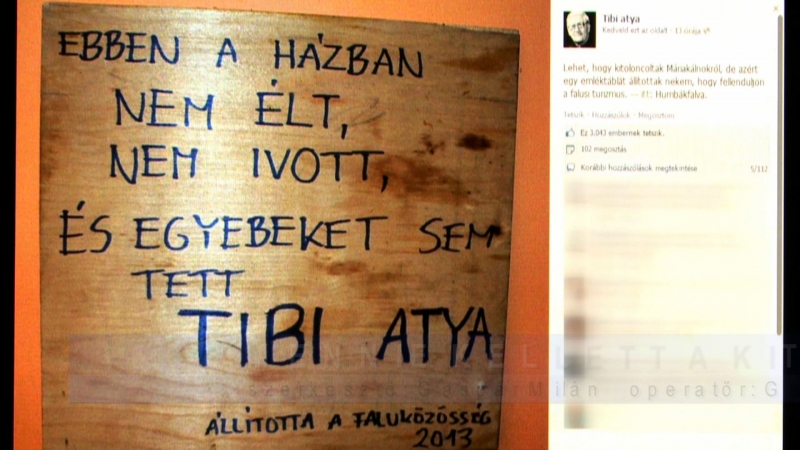 EBBEN A HÁZBAN
NEM ÉLT,
NEM IVOTT,
ÉS EGYEBEKET SEM
TETT
TIBI ATYA
ÁLLÍTOTTA A FALUKÖZÖSSÉG
2013
Tibi atya
Kedveld ezt az oldalt · 13 órája
Lehet, hogy kitoloncoltak Máriakálnokról, de azért
egy emléktáblát állítottak nekem, hogy fellendüljön
a falusi turizmus. — itt: Humbákfalva.
Tetszik · Hozzászólok · Megosztom
Ez 3,043 embernek tetszik.
102 megosztás
Korábbi hozzászólások megtekintése
5/112
Milán operatőr: G